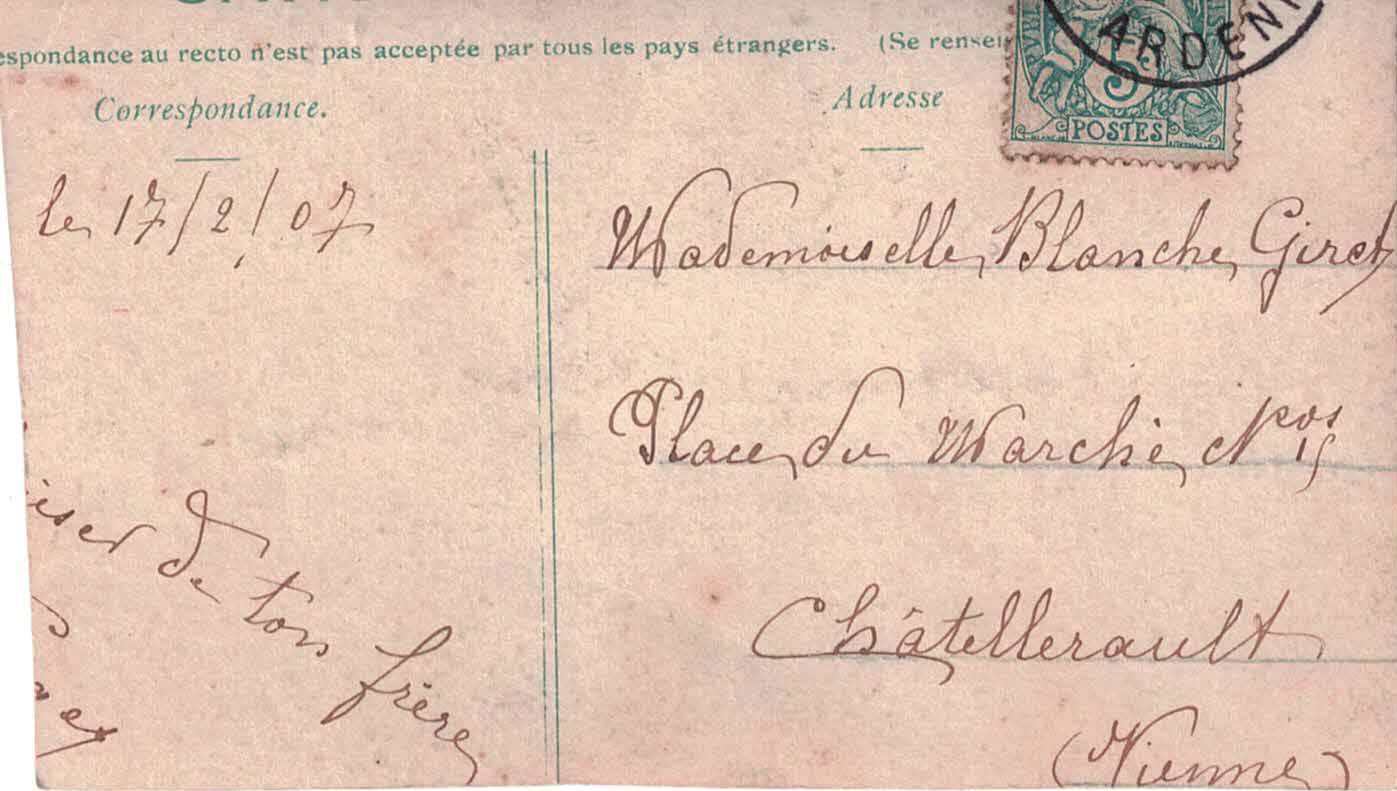 espondance au recto n'est pas acceptée par tous les pays étrangers. (Se rensei
Correspondance.
Adresse
ARDENN
5c
POSTES
le 17/2/07
Mademoiselle Blanche Giret
Place du Marché Nos 15
Châtellerault
(Vienne)
iser de ton frère